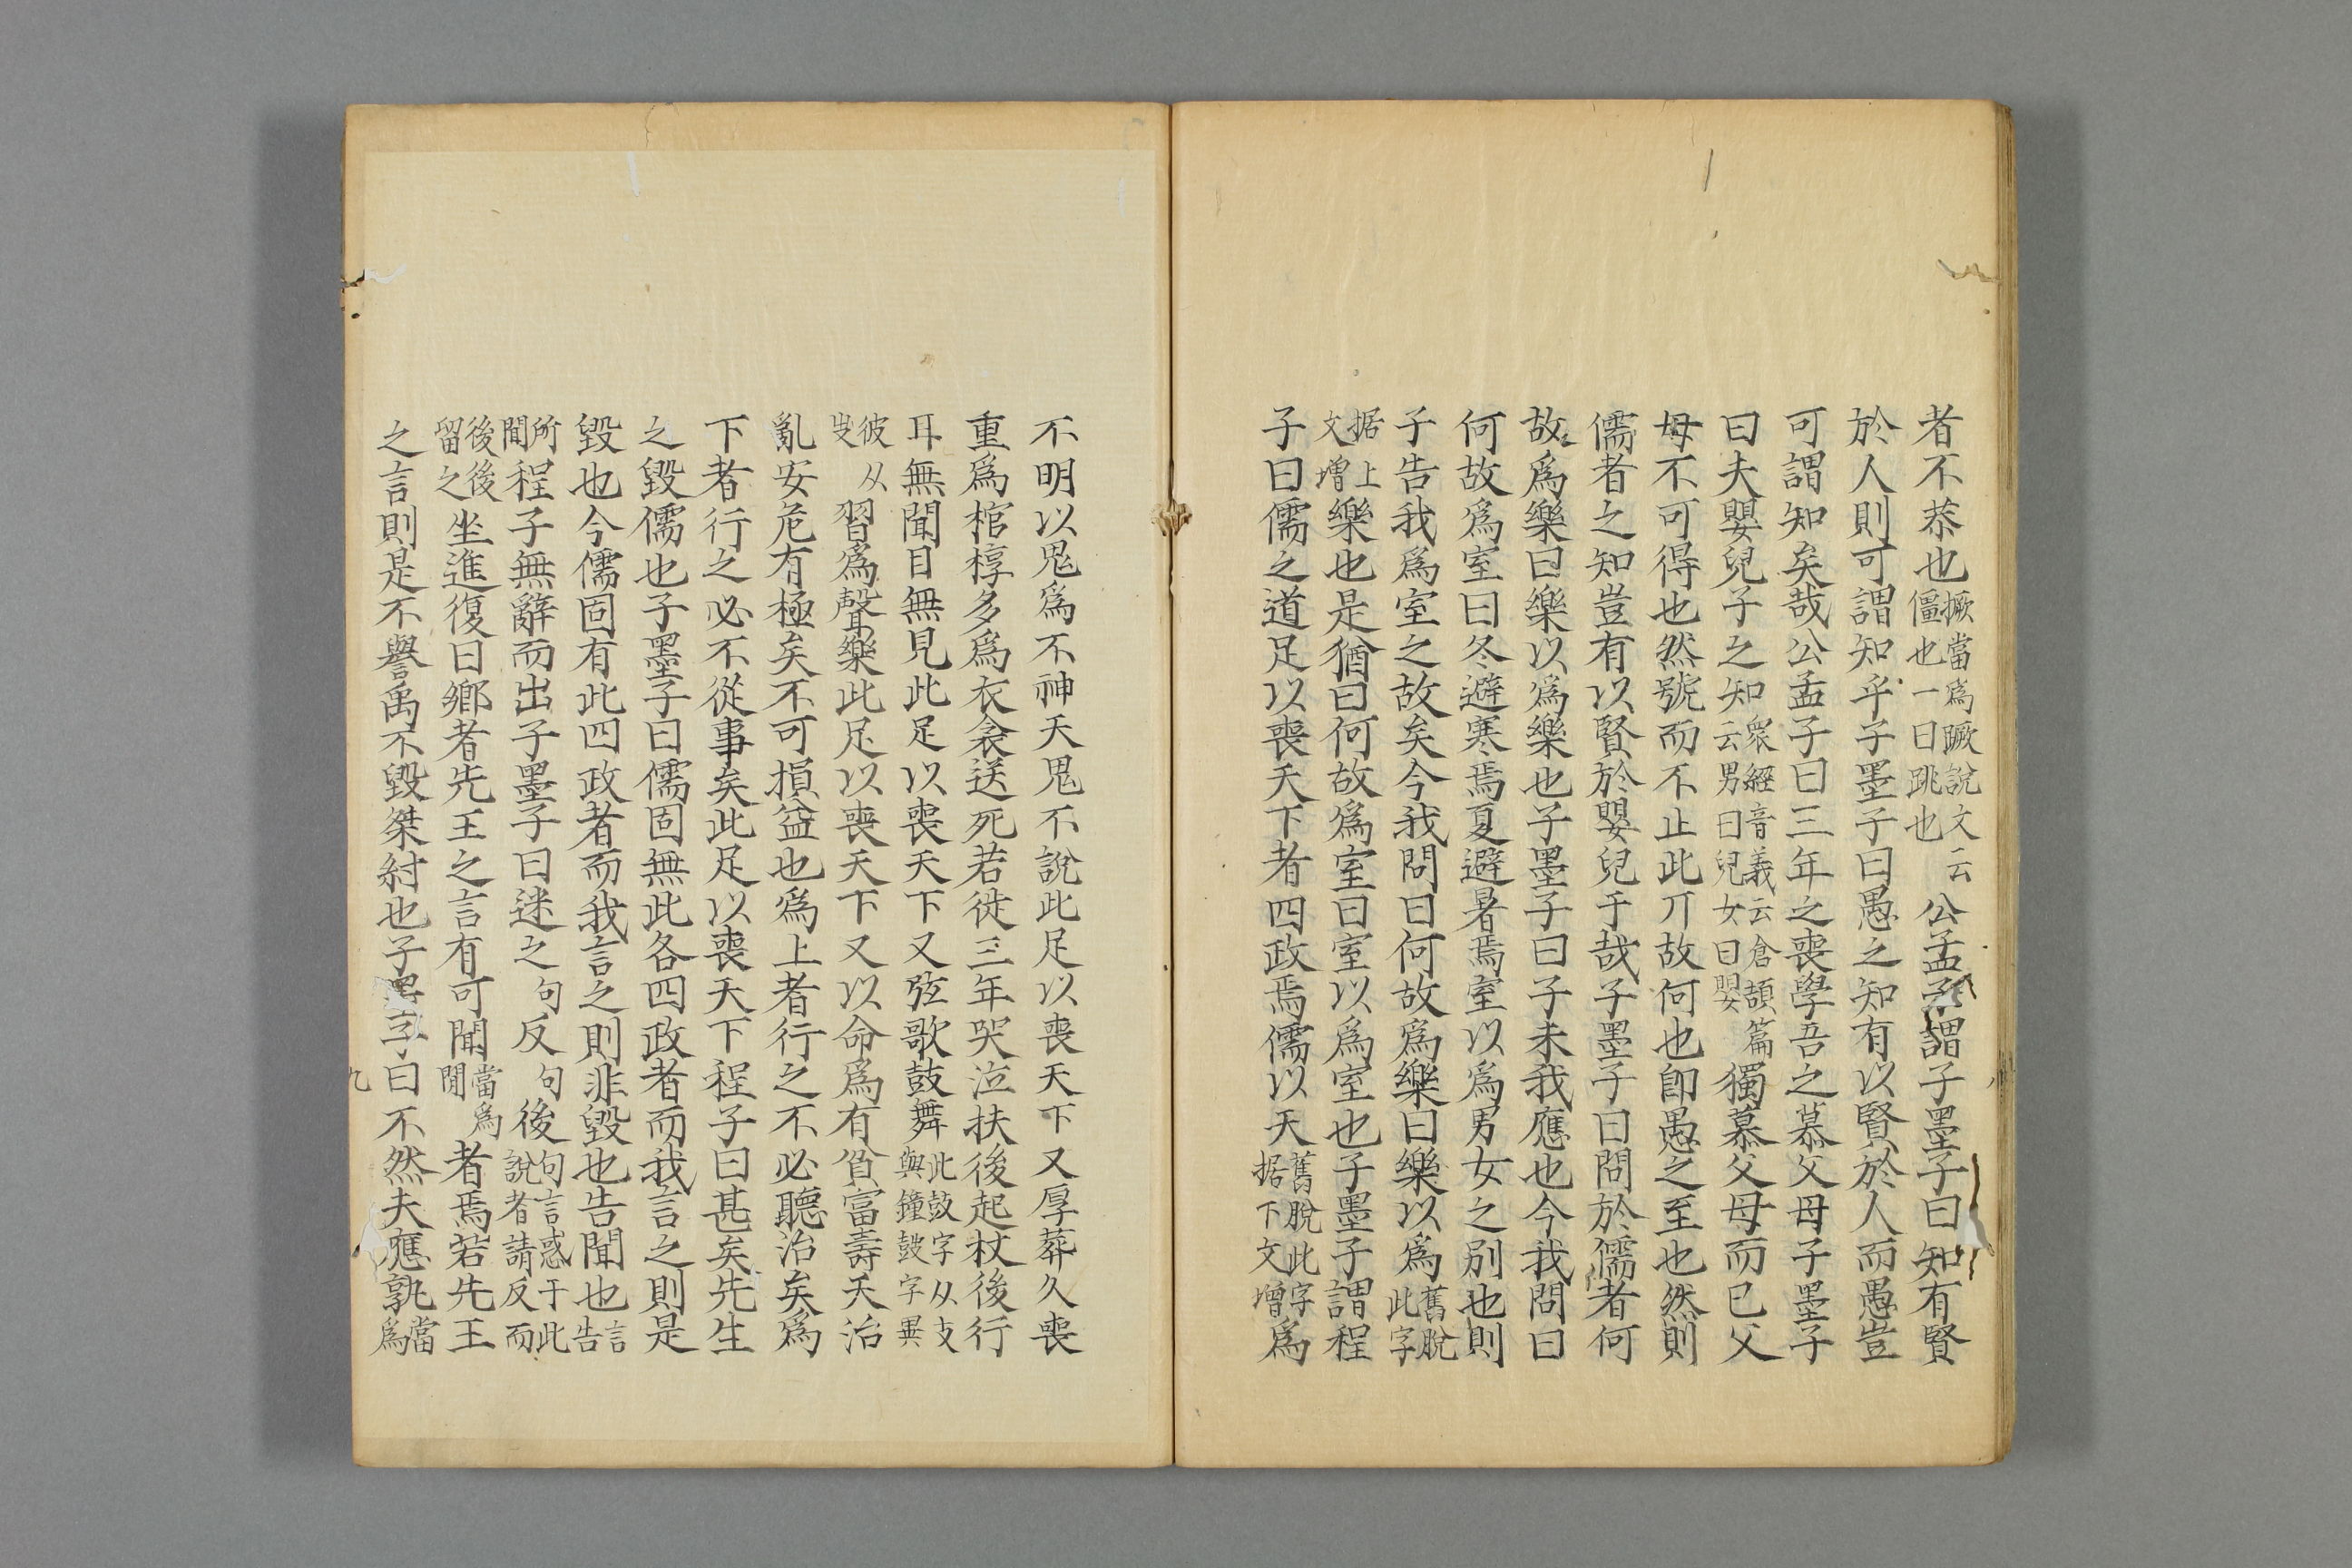 者不恭也撅當爲蹶說文云僵也一曰跳也公孟子謂子墨子曰知有賢
於人則可謂知乎子墨子曰愚之知有以賢於人而愚豈
可謂知矣哉公孟子曰三年之喪學吾之慕父母子墨子
曰夫嬰兒子之知衆經音義云倉頡篇云男曰兒女曰嬰獨慕父母而已父
母不可得也然號而不止此丌故何也卽愚之至也然則
儒者之知豈有以賢於嬰兒子哉子墨子曰問於儒者何
故爲樂曰樂以爲樂也子墨子曰子未我應也今我問曰
何故爲室曰冬避寒焉夏避暑焉室以爲男女之別也則
子告我爲室之故矣今我問曰何故爲樂曰樂以爲舊脫此字
据上文增樂也是猶曰何故爲室曰室以爲室也子墨子謂程
子曰儒之道足以喪天下者四政焉儒以天舊脫此字据下文增爲
不明以鬼爲不神天鬼不說此足以喪天下又厚葬久喪
重爲棺椁多爲衣衾送死若徙三年哭泣扶後起杖後行
耳無聞目無見此足以喪天下又弦歌鼓舞此鼓字从攴與鐘鼓字異
彼从𠬢習爲聲樂此足以喪天下又以命爲有貧富壽夭治
亂安危有極矣不可損益也爲上者行之不必聽治矣爲
下者行之必不從事矣此足以喪天下程子曰甚矣先生
之毀儒也子墨子曰儒固無此各四政者而我言之則是
毀也今儒固有此四政者而我言之則非毀也告聞也言告
所聞程子無辭而出子墨子曰迷之句反句後句言惑于此說者請反而
後後留之坐進復曰鄉者先王之言有可聞當爲閒者焉若先王
之言則是不譽禹不毀桀紂也子墨子曰不然夫應孰當爲
九